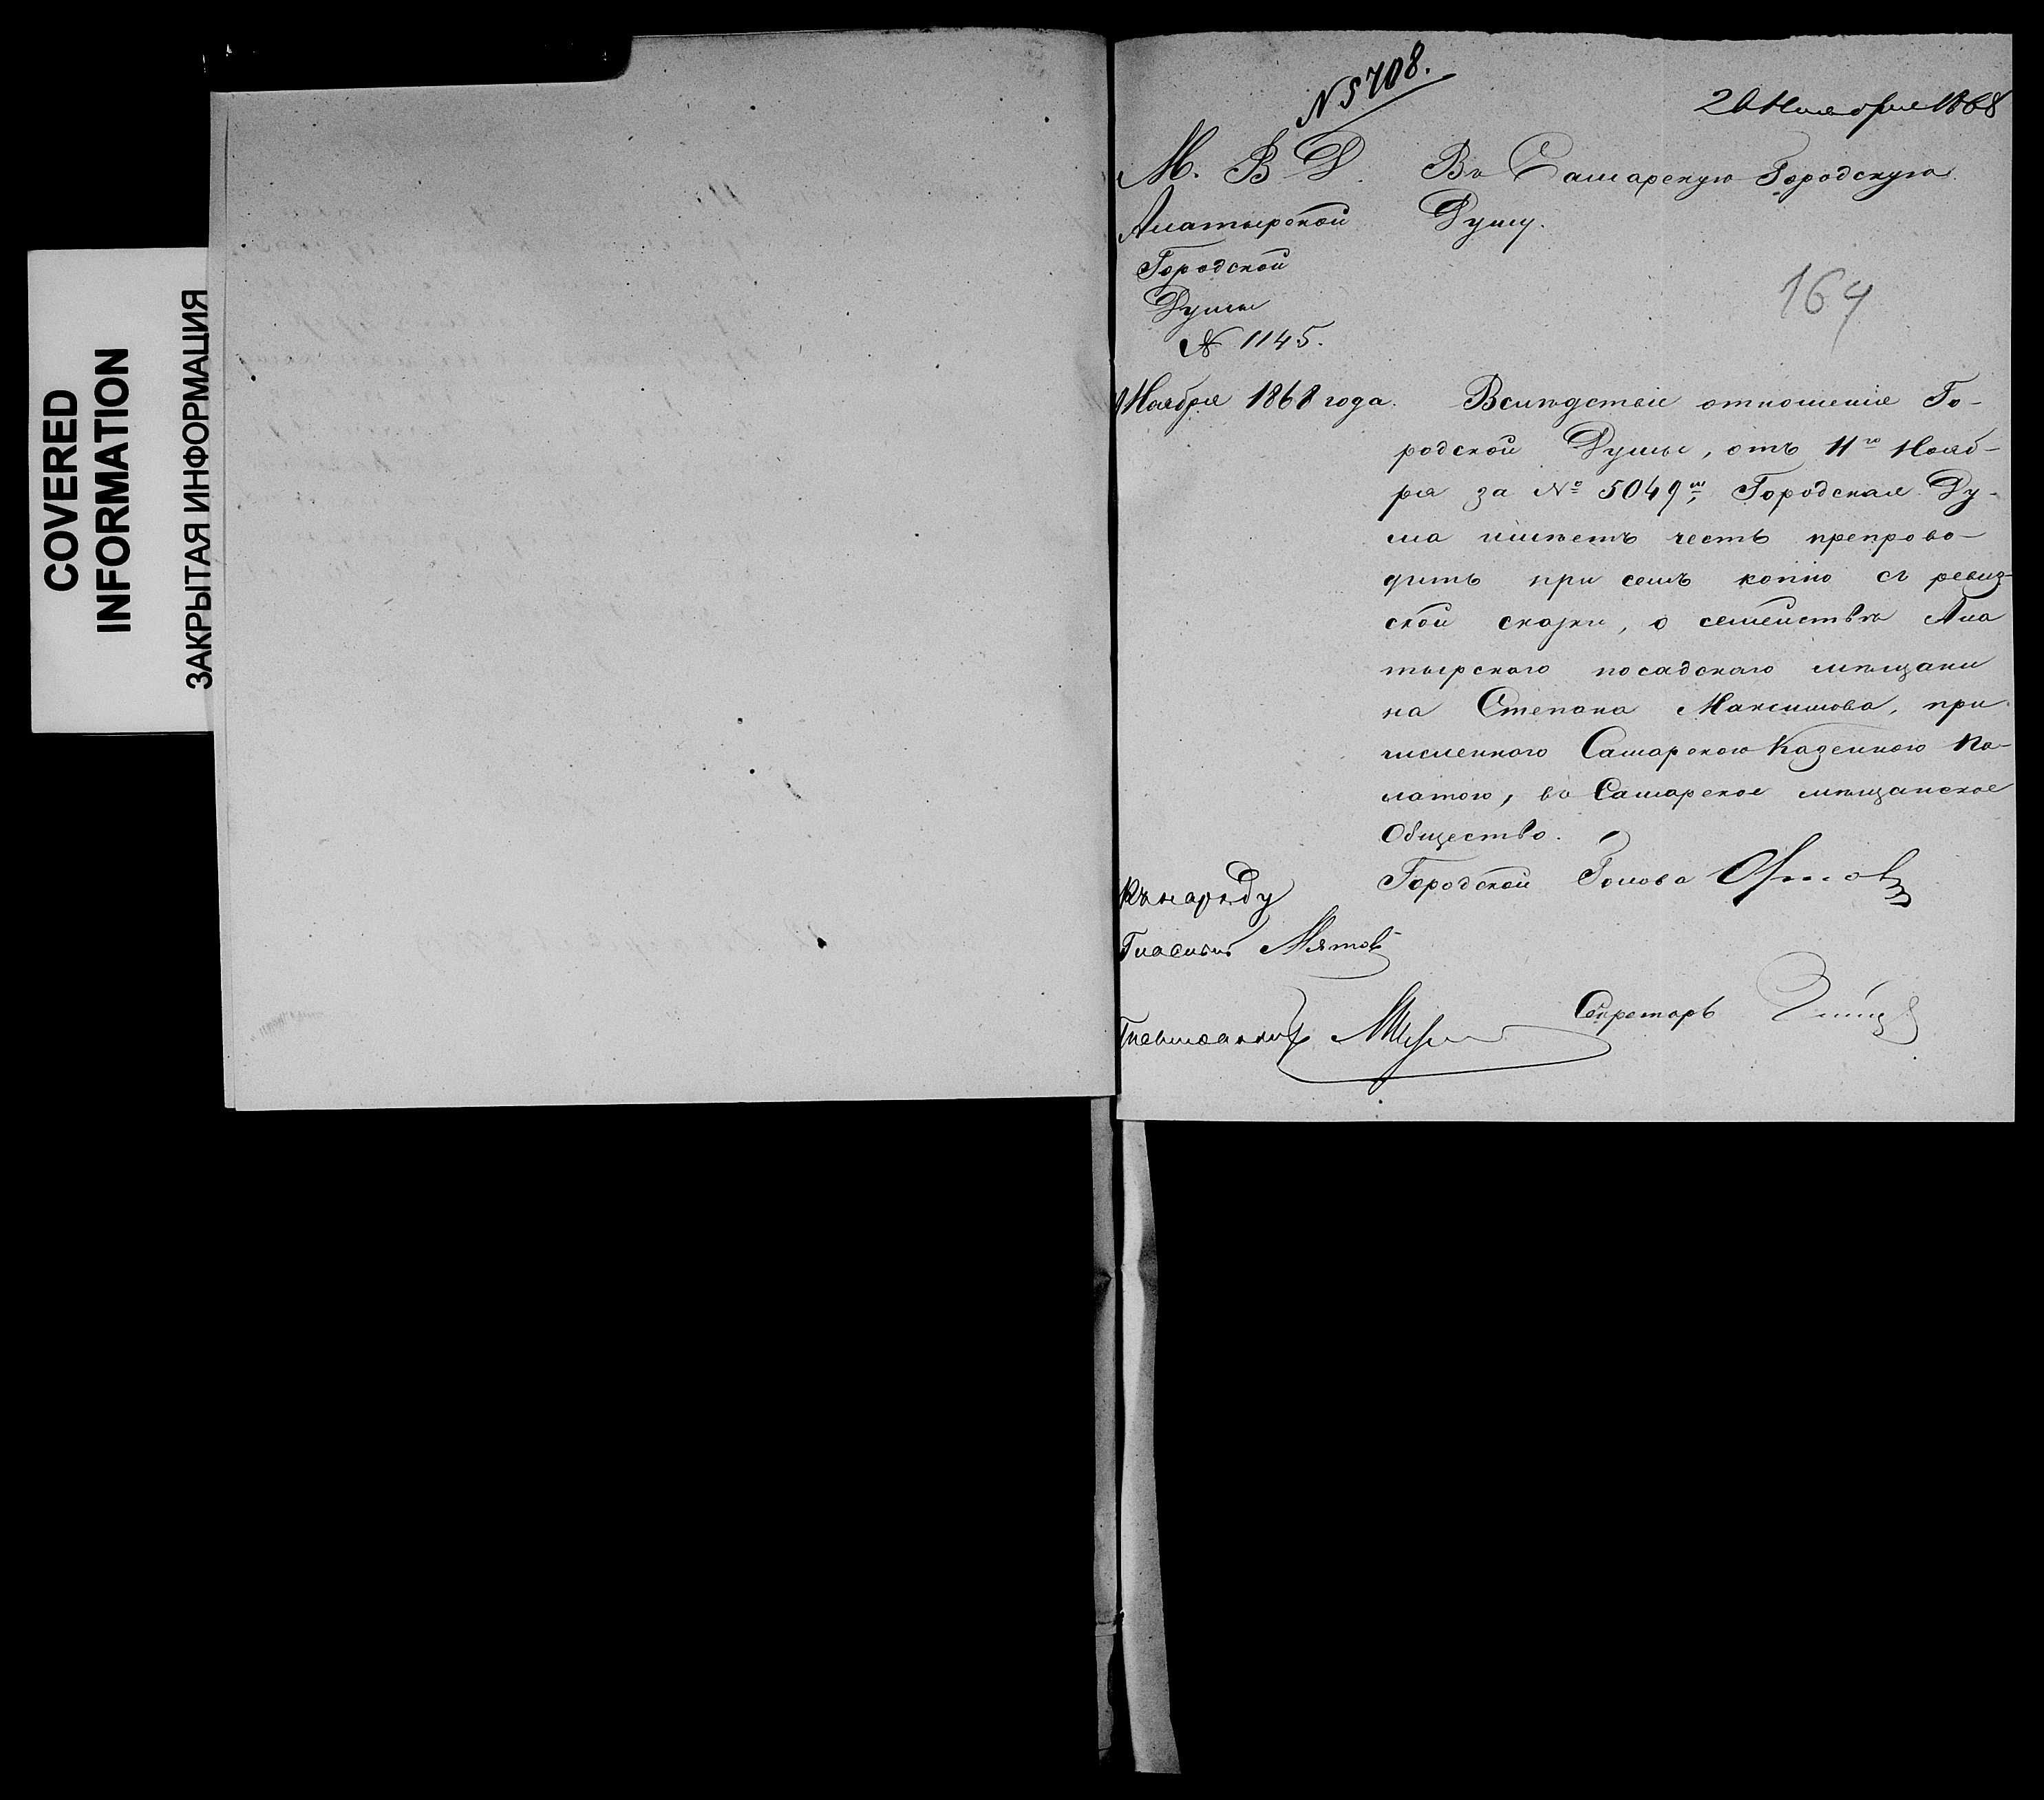 COVERED
INFORMATION
ЗАКРЫТАЯ ИНФОРМАЦИЯ
N 5708.
26 Ноября 1868
М. В Д.
Алатырской
Городской
Думы
№ 1145.
Ноября 1868 года.
Въ Самарскую Городскую
Думу.
164
Вслѣдствіе отношенія Го-
родской Думы, отъ 11го Нояб-
ря за № 5049м, Городская Ду-
ма имѣетъ честь препрово-
дить при семъ копію съ ревиз-
ской скаски, о семействѣ Ала
тырского посадскаго мѣщани
на Степана Максимова, при
численного Самарскою Казенною Па-
латою, въ Самарское мѣщанское
Общество.
Городской Голова
Къ наряду
Гласный
Секретарь